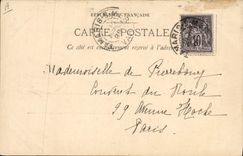 RÉPUBLIQUE FRANÇAISE
CARTE POSTALE
Ce côté est exclusivement réservé à l'adresse
Mademoiselle de Pierrebourg
Couvent du Roule
99 Avenue Hoche
Paris